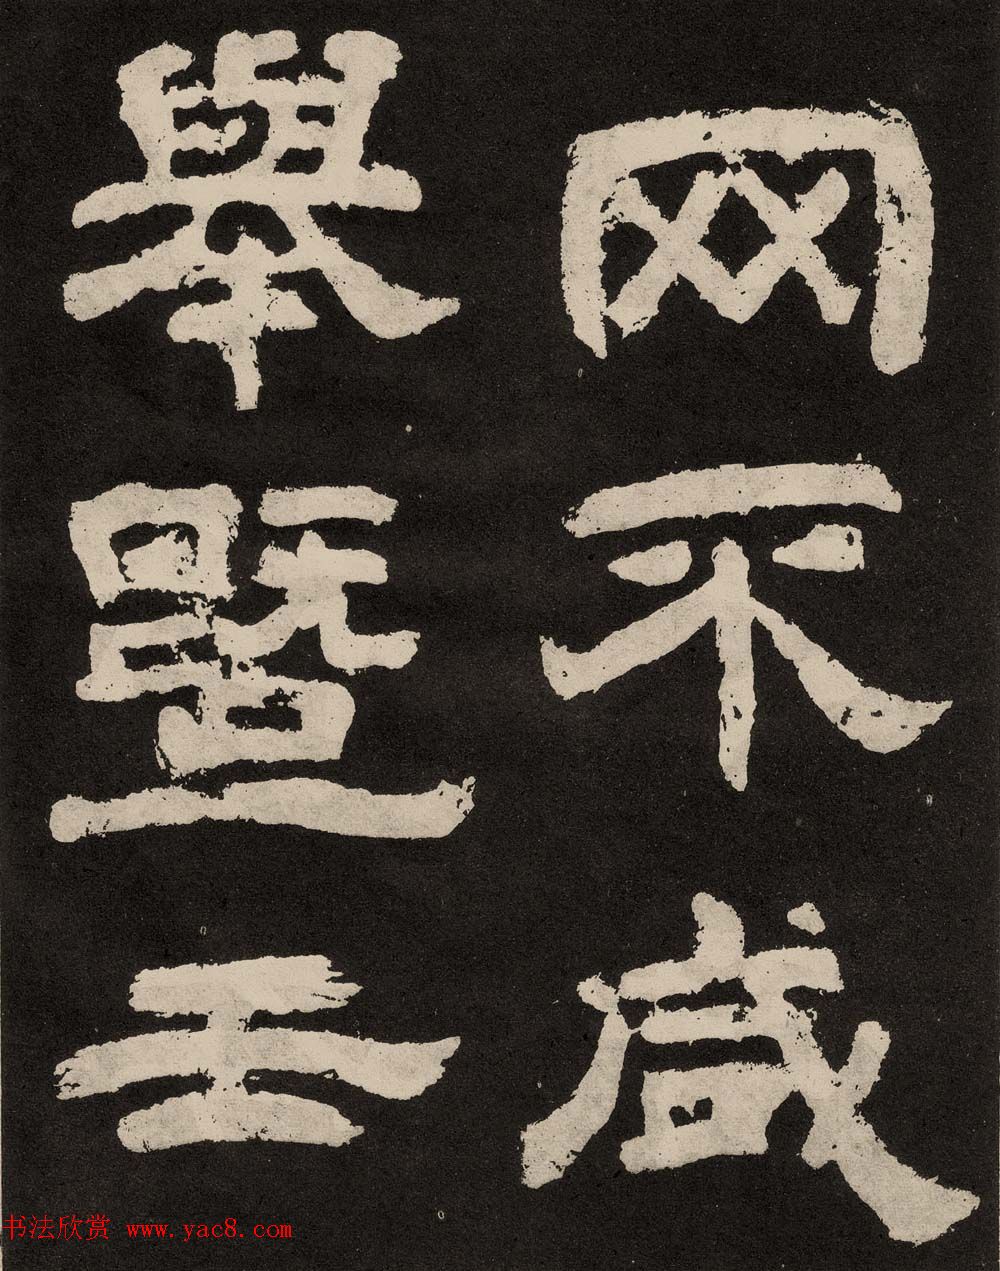 网不咸
舉暨壬
书法欣赏 www.yac8.com